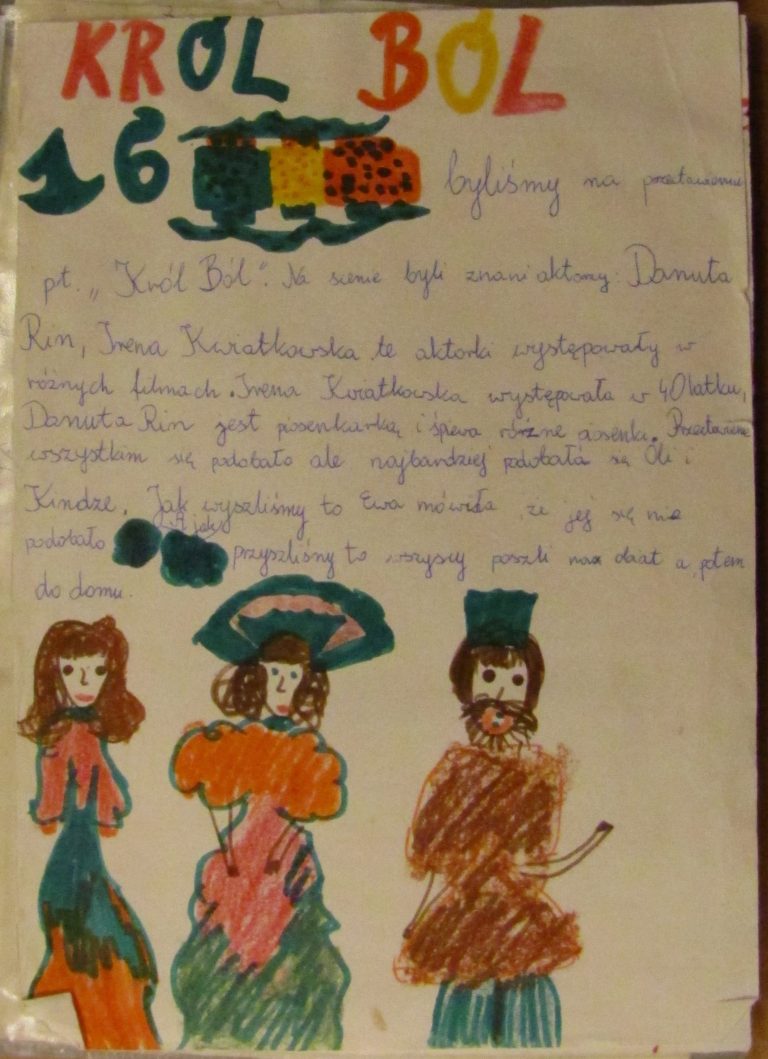 KRÓL BÓL
16 byliśmy na przetawieniu
pt. „Król Ból". Na scenie byli znani aktorzy: Danuta
Rin, Irena Kwiatkowska te aktorki występowały w
różnych filmach. Irena Kwiatkowska występowała w 40latku,
Danuta Rin jest piosenkarką i śpiewa różne piosenki. Przetawienie
wszystkim się podobało ale najbardziej podobała się Oli i
Kindze. Jak wyszliśmy to Ewa mówiła, że jej się nie
A jak
podobało przyszliśmy to wszyscy poszli na a potem
do domu.